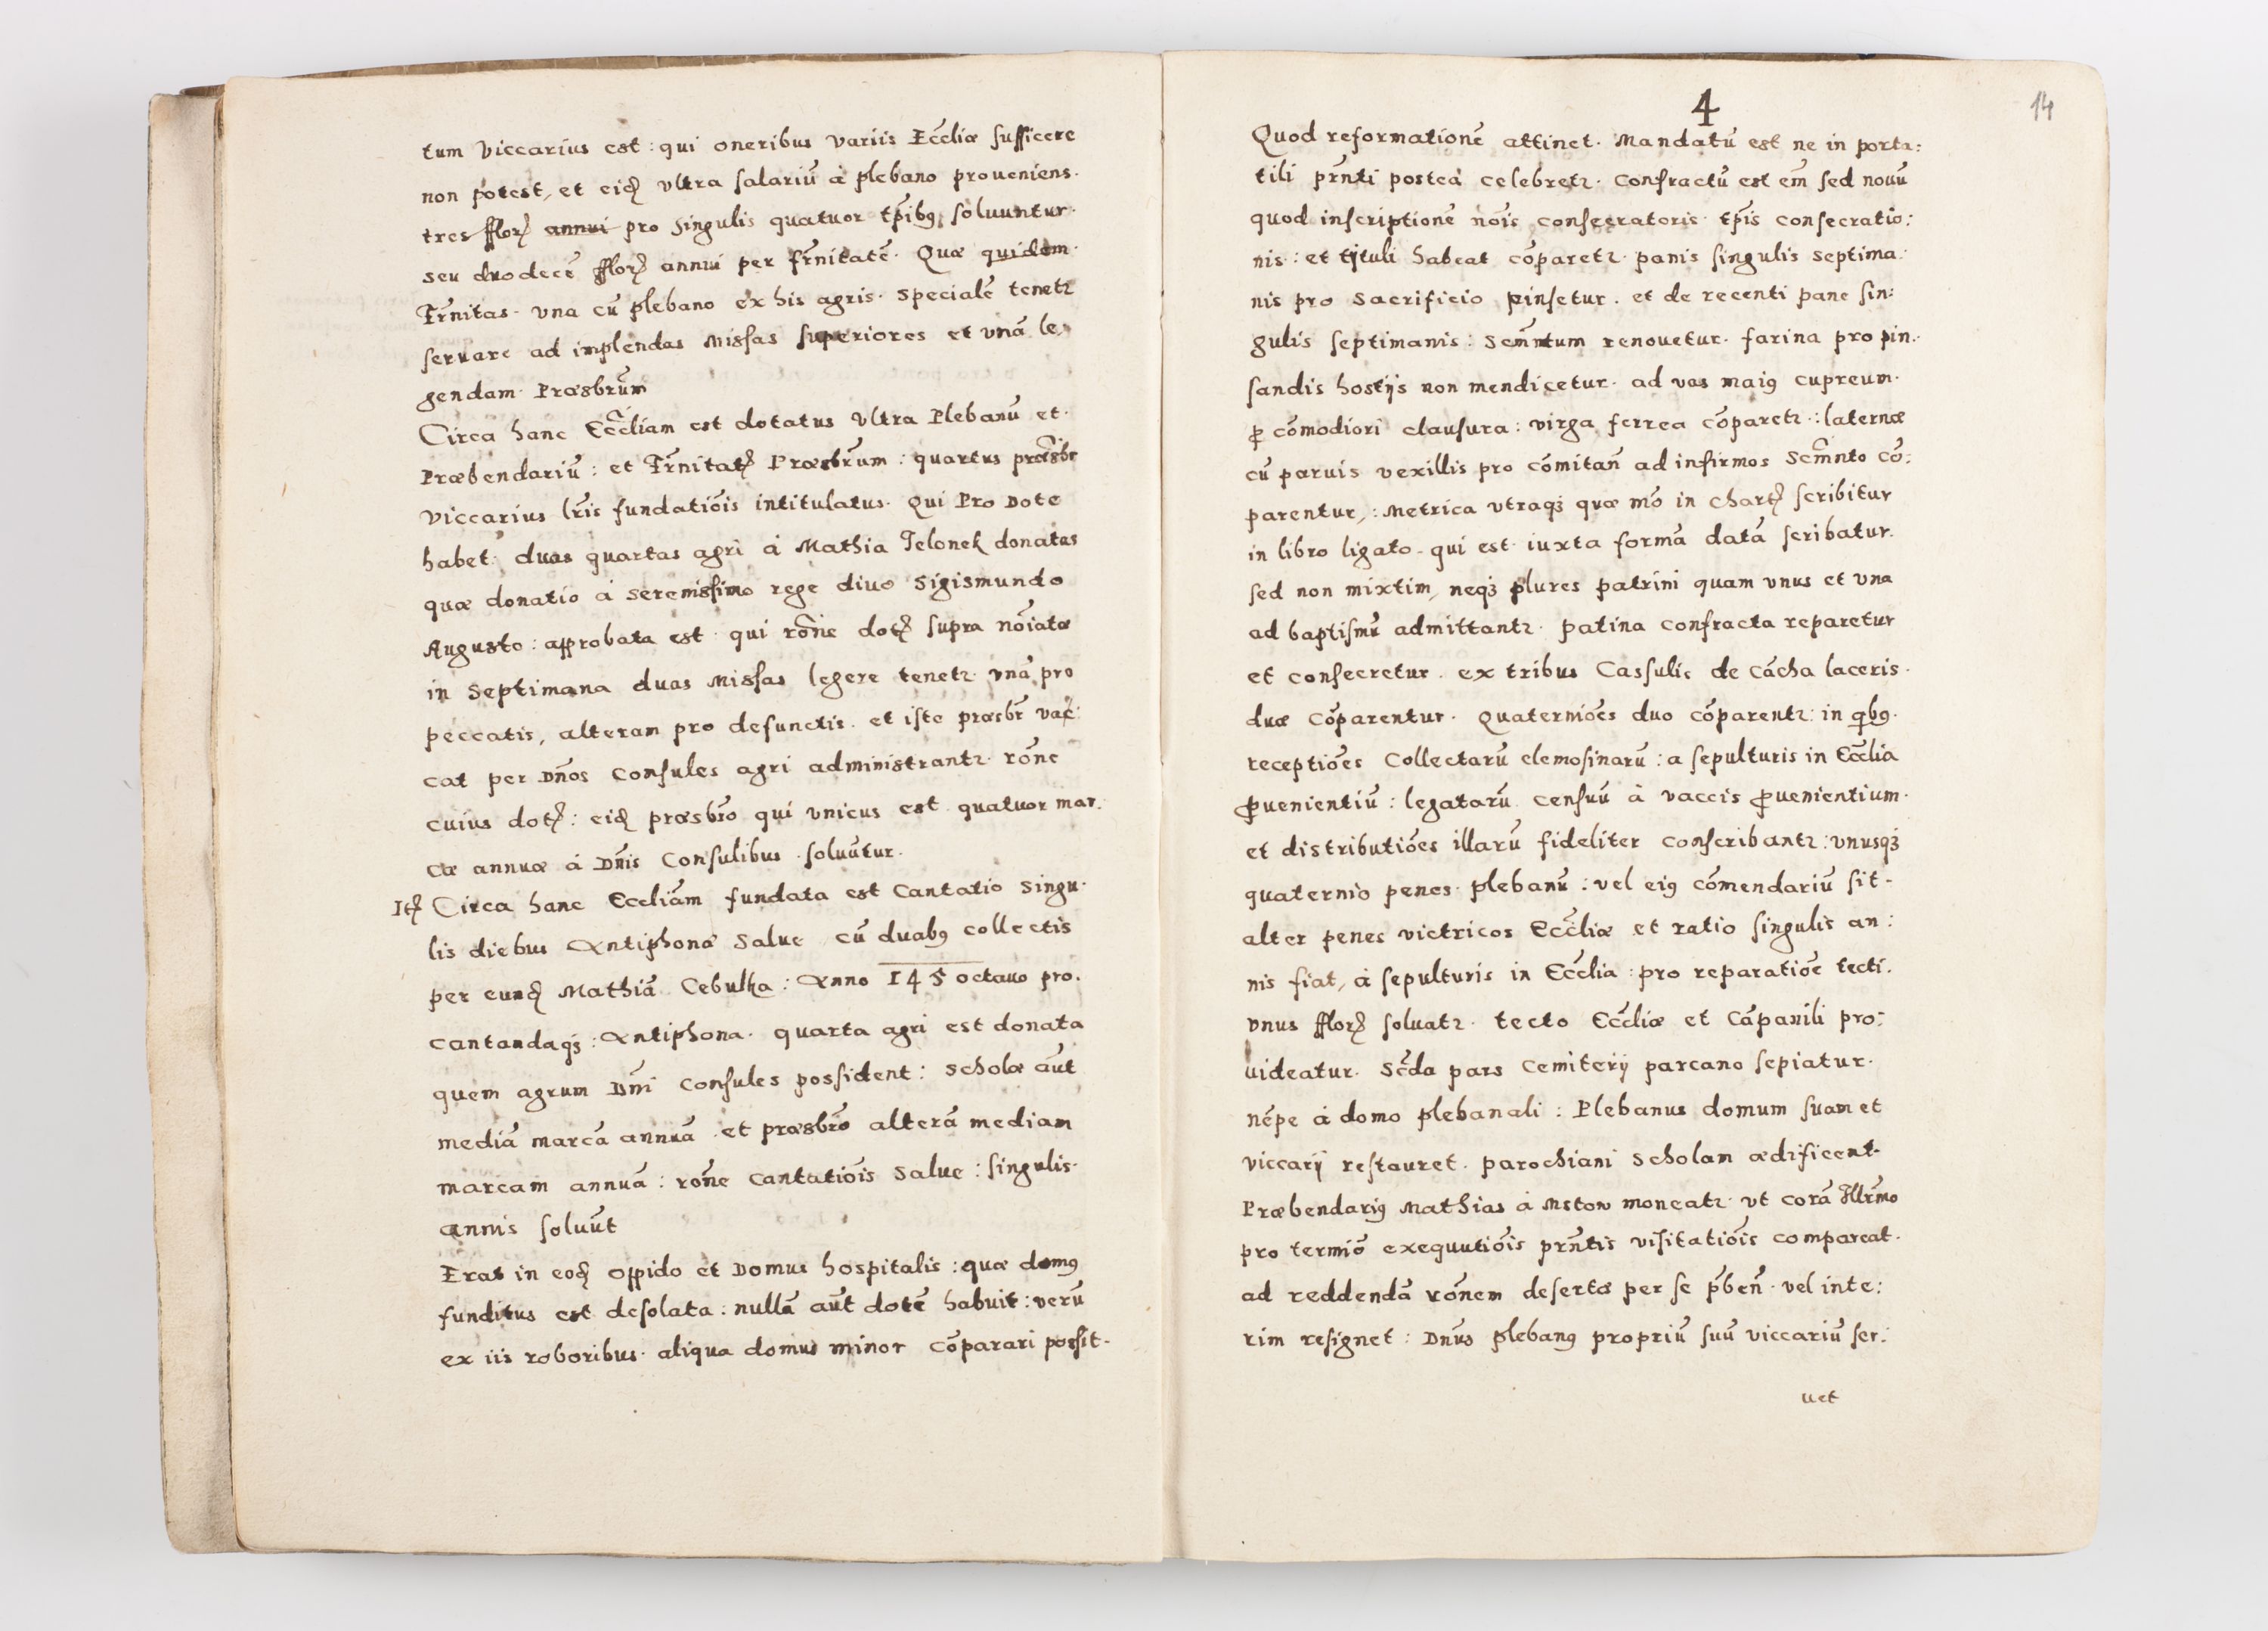 tum Viccarius est : qui oneribus variis Eccl̃iæ ſufficere
non potest, et eidꝫ Vltra ſalariũ à plebano proueniens.
tres fflorꝫ annui pro Singulis quatuor tp̃ibꝰ ſoluuntur.
seu duodecẽ fflorꝫ annui per fr̃nitatẽ. Quæ quidem.
Fr̃nitas. vna cũ plebano ex his agris. specialẽ tenetꝛ
ſeruare ad implendas Miſsas ſuperiores et vnã le,
gendam. Præsbr̃um
Circa hanc Eccl̃iam est dotatus Vltra Plebanũ et.
Præbendariũ : et Fr̃nitatꝫ Præsbr̃um : quartus præsbr̃
Viccarius lr̃is fundatiõis intitulatus. Qui Pro Dote
habet duas quartas agri à Mathia Telonek donatas
quæ donatio à sereniſsimo rege diuo Sigismundo
Augusto : approbata est. qui rõne dotꝫ ſupra nõiatæ
in Septimana duas Miſsas legere tenetꝛ vnã pro
peccatis, alteram pro defunctis. et iſte præsbr̃ vac:
cat per Dños Conſules agri administrantꝛ rõne
cuius dotꝫ : eidꝫ præsbr̃o qui vnicus est quatuor mar.
cæ annuæ à Dñis Conſulibus ſoluũtur.
Itꝫ Circa hanc Eccliãm fundata est Cantatio singu.
lis diebus Antiphonæ Salue cũ duabꝰ collectis
per eundꝫ Mathiã Cebulka : Anno 145 octauo pro.
cantandaqꝫ : Antiphona. quarta agri est donata
quem agrum Dñi Conſules poſsident : Scholæ aũt
mediã marcã annuã et præsbr̃o alterã mediam
marcam annuã : rõne Cantatiõis Salue : ſingulis.
annis ſoluũt
Erat in eodꝫ oppido et Domus hospitalis : quæ domꝰ
funditus est deſolata : nullã aũt dotẽ habuit : verũ
ex iis roboribus. aliqua domus minor cõparari poſsit.
4
14
Quod reformationẽ attinet. Mandatũ est ne in porta:
tili pr̃nti posteà celebretꝛ. Confractũ est em̃ sed nouũ
quod inſcriptionẽ nõis conſecratoris tp̃is conſecratio:
nis : et tituli habeat cõparetꝛ panis ſingulis septima.
nis pro Sacrificio pinſetur. et de recenti pane ſin:
gulis ſeptimanis : Sem̃ntum renouetur. farina pro pin.
ſandis hostijs non mendicetur. ad vas maiꝰ cupreum.
ꝓ cõmodiori clauſura : virga ferrea cõparetꝛ : laternæ
cũ paruis vexillis pro cõmitañ ad infirmos Scm̃nto cõ:
parentur, : Metrica vtraqꝫ quæ mõ in chartꝫ ſcribitur
in libro ligato. qui est iuxta formã datã ſcribatur.
ſed non mixtim, neqꝫ plures patrini quam vnus et vna
ad baptiſmũ admittantꝛ. patina confracta reparetur
et conſecretur. ex tribus Caſsulis de Cãcha laceris.
duæ cõparentur. Quaterniões duo cõparentꝛ : in qbꝰ.
receptiões Collectarũ elemoſinarũ : a sepulturis in Eccl̃ia
ꝓuenientiũ : legatarũ cenſuũ à vaccis ꝓuenientium.
et distributiões illarũ fideliter conſcribantꝛ : vnusqꝫ
quaternio penes plebanũ : vel eiꝰ cõmendariũ ſit.
alter penes victricos Eccl̃iæ et ratio ſingulis an:
nis fiat, à ſepulturis in Eccl̃ia : pro reparatiõe tecti.
vnus fflorꝫ ſoluatꝛ. tecto Eccl̃iæ et Cãpanili pro:
uideatur. Scd̃a pars Cemiterij parcano sepiatur.
nẽpe à domo plebanali : Plebanus domum ſuam et
viccarij reſtauret. parochiani Scholam ædificent.
Præbendariꝰ Mathias à Mstow moneatꝛ. vt corã Illr̃mo
pro termiõ exequutiõis pr̃ntis viſitatiõis compareat.
ad reddendã rõnem desertæ per ſe p̃beñ. vel inte:
rim reſignet : Dñus plebanꝰ propriũ ſuũ viccariũ ſer:
uet